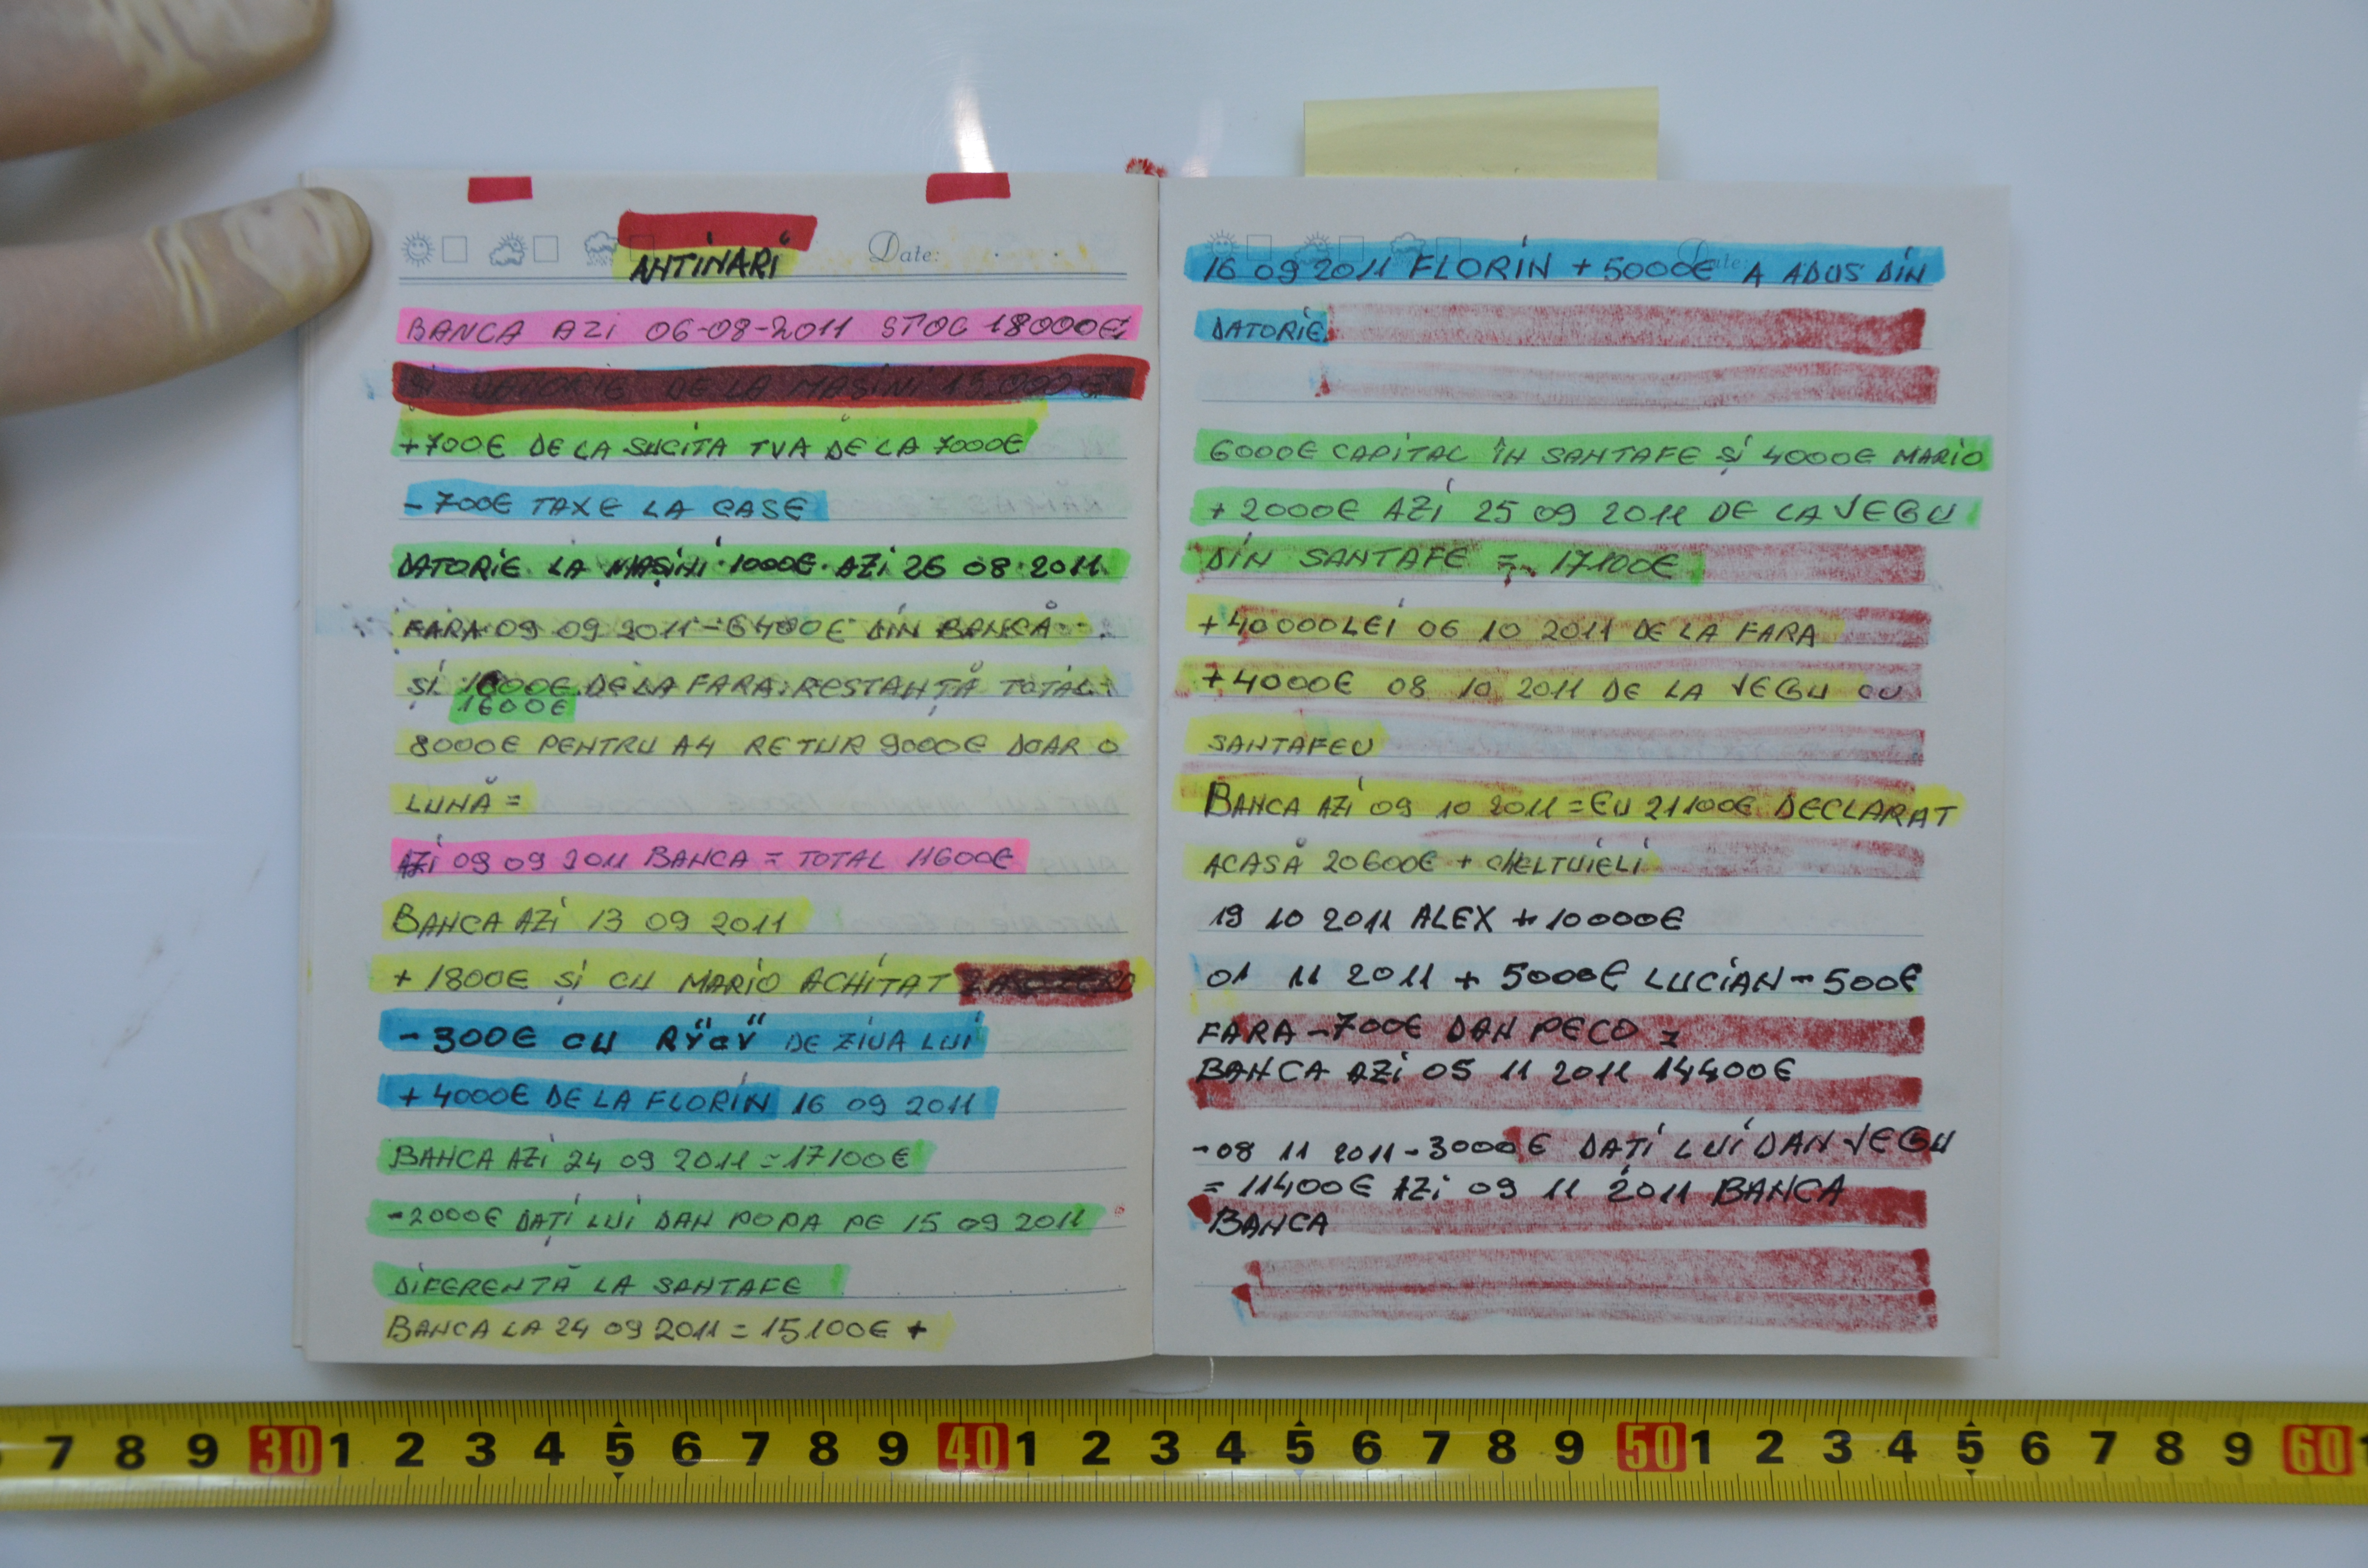 Date:
ANTINARI
BANCA AZI 06-08-2011 STOC 18000€
ȘI DATORIE DE LA MAȘINI 15000€
+700€ DE LA SUCITA TVA DE LA 7000€
- 700€ TAXE LA CASE
DATORIE LA MAȘINI 1000€ AZI 26 08 2011
FARA 09 09 2011 - 6400€ DIN BANCĂ
ȘI 1600€ DE LA FARA RESTANȚĂ TOTAL
1600€
8000€ PENTRU A4 RETUR 9000€ DOAR O
LUNĂ =
AZI 09 09 2011 BANCA = TOTAL 11600€
BANCA AZI 13 09 2011
+ 1800€ ȘI CU MARIO ACHITAT
- 300€ CU DE ZIUA LUI
+ 4000€ DE LA FLORIN 16 09 2011
BANCA AZI 24 09 2011 = 17100€
-2000€ DAȚI LUI DAN POPA PE 15 09 2011
DIFERENȚĂ LA SANTAFE
BANCA LA 24 09 2011 = 15100€ +
Date:
16 09 2011 FLORIN + 5000€ A ADUS DIN
DATORIE
6000€ CAPITAL ÎN SANTAFE ȘI 4000€ MARIO
+ 2000€ AZI 25 09 2011 DE LA VEGU
DIN SANTAFE = 17100€
+40000LEI 06 10 2011 DE LA FARA
+4000€ 08 10 2011 DE LA VEGU CU
SANTAFEU
BANCA AZI 09 10 2011 = EU 21100€ DECLARAT
ACASĂ 20600€ + CHELTUIELI
19 10 2011 ALEX + 10000€
01 11 2011 + 5000€ LUCIAN - 500€
FARA - 700€ DAN PECO =
BANCA AZI 05 11 2011 14400€
-08 11 2011 - 3000€ DAȚI LUI DAN VEGU
= 11400€ AZI 09 11 2011 BANCA
BANCA
7 8 9 30 1 2 3 4 5 6 7 8 9 40 1 2 3 4 5 6 7 8 9 50 1 2 3 4 5 6 7 8 9 60